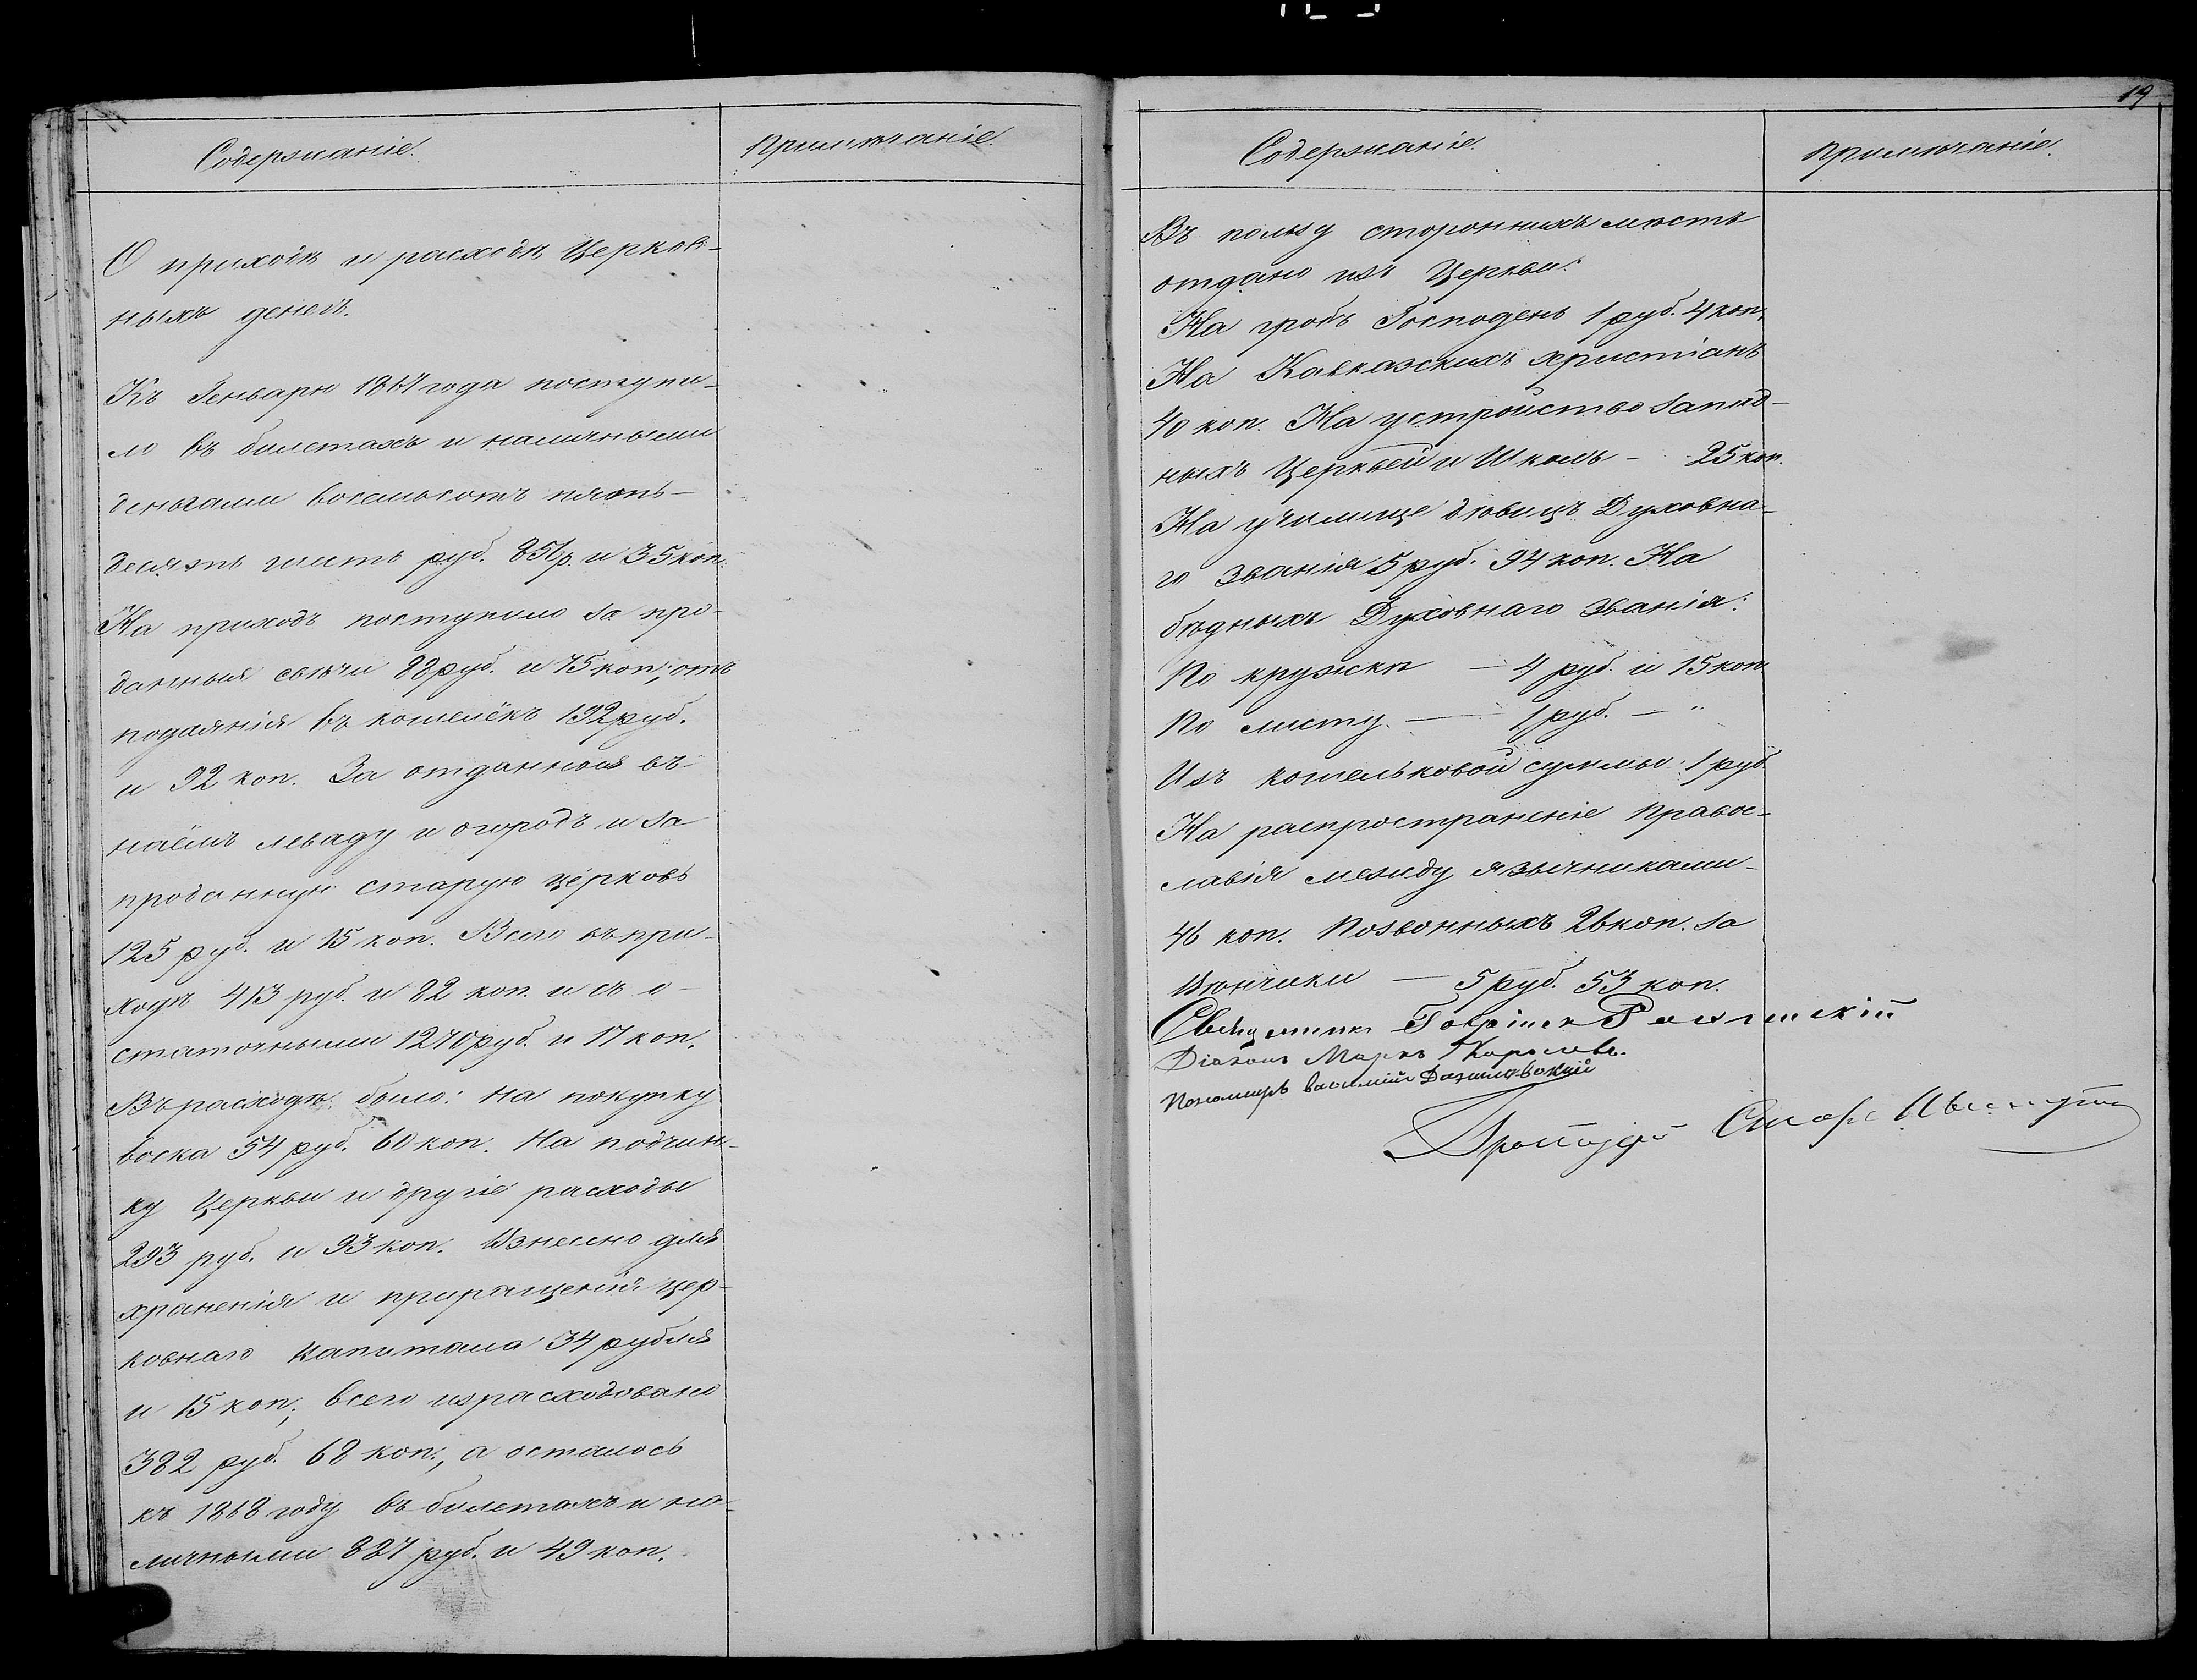 19
Содержаніе.
Примѣчаніе.
О приходѣ и расходѣ Церков-
ныхъ денегъ.
Къ Генварю 1867 года поступи-
ло въ билетахъ и наличными
деньгами восемьсотъ пять-
десятъ шесть руб. 856 р. и 35 коп.
На приходъ поступило за про-
данныя свѣчи 88 руб. и 75 коп; отъ
подаянія въ кошелёкъ 192 руб.
и 92 коп. За отданныя въ
наёмъ леваду и огородъ и за
проданную старую церковь
125 руб. и 15 коп. Всего въ при-
ходѣ 413 руб. и 82 коп. и съ о-
статочными 1270 руб. и 17 коп.
Въ расходѣ было: на покупку
воска 54 руб. 60 коп. На починк-
ку Церкви и другіе расходы
293 руб. и 93 коп. Взнесено для
храненія и приращенія цер-
ковнаго капитала 34 рубля
и 15 коп; всего израсходовано
382 руб. 68 коп., а осталось
къ 1868 году въ билетахъ и на-
личными 887 руб. и 49 коп.
Содержаніе.
Примѣчаніе.
Въ пользу стороннихъ мѣстъ
отдано изъ Церкви:
На гробъ Господень 1 руб. 4 коп.
На Кавказскихъ христіанъ
40 коп. На устройство Запад-
ныхъ Церквей и Школъ - 25 коп.
На училище дѣвицъ Духовна-
го званія 5 руб. 94 коп. На
бѣдныхъ Духовнаго званія:
По кружкѣ — 4 руб. и 15 коп.
По листу. — 1 руб. — "
Изъ кошельковой суммы 1 руб.
На распространеніе Правос-
лавія между язычниками -
46 коп. Позвонныхъ 26 коп. за
Вѣнчики — 5 руб. 53 коп.
Священникъ
Діаконъ Маркъ Королевъ.
Пономарь Василій Данилевскій